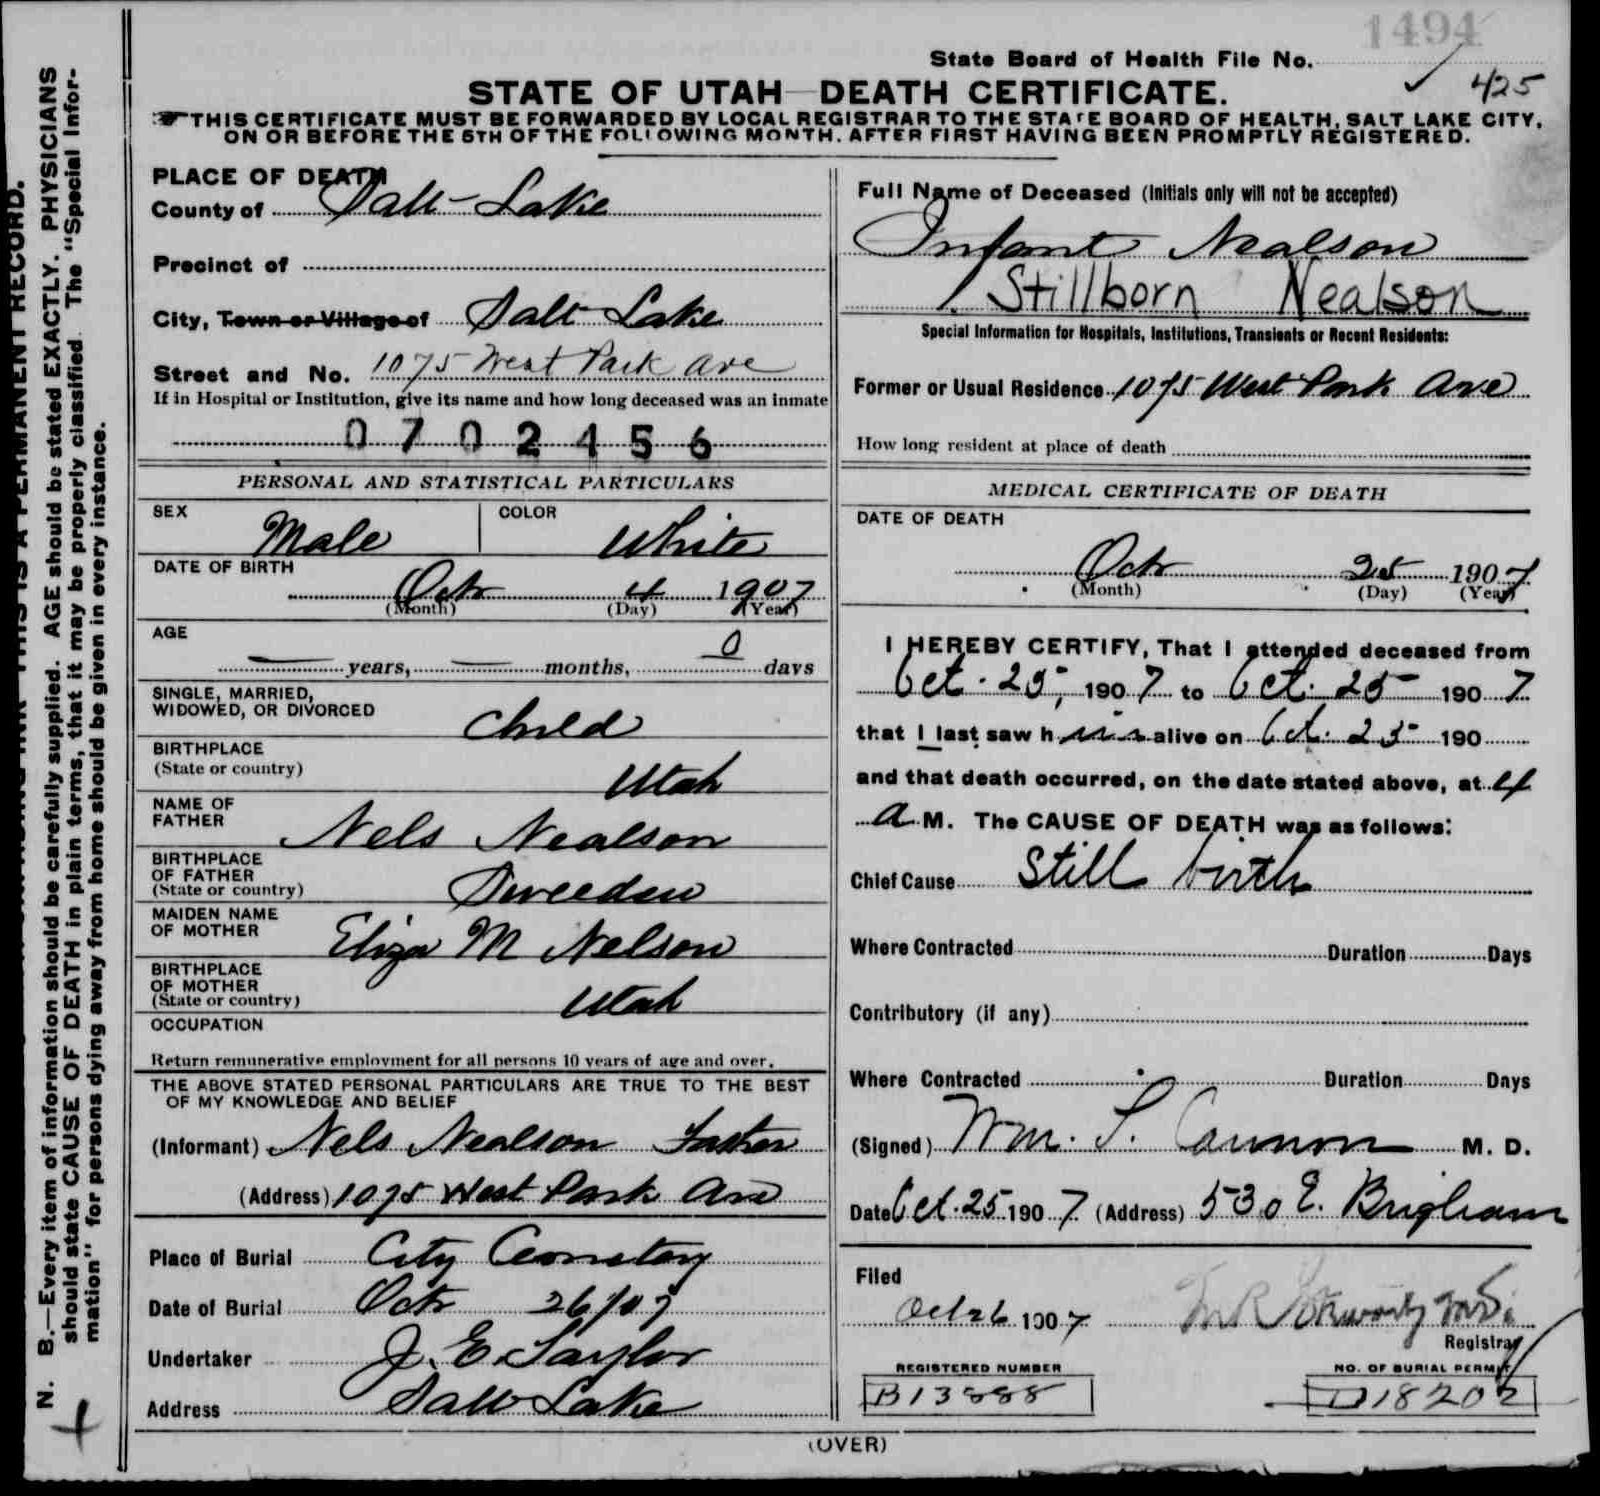 1494
State Board of Health File No.
425
STATE OF UTAH DEATH CERTIFICATE.
THIS CERTIFICATE MUST BE FORWARDED BY LOCAL REGISTRAR TO THE STATE BOARD OF HEALTH, SALT LAKE CITY,
ON OR BEFORE THE 5TH OF THE FOLLOWING MONTH. AFTER FIRST HAVING BEEN PROMPTLY REGISTERED.
PLACE OF DEATH
County of Salt Lake
Precinct of
City, Town or Village of Salt Lake
Street and No. 1075 West Park Ave
If in Hospital or Institution, give its name and how long deceased was an inmate
0702456
PERSONAL AND STATISTICAL PARTICULARS
SEX Male COLOR White
DATE OF BIRTH
Oct 4 1907
(Month) (Day) (Year)
AGE
— years, — months, 0 days
SINGLE, MARRIED,
WIDOWED, OR DIVORCED Child
BIRTHPLACE
(State or country) Utah
NAME OF
FATHER Nels Nealson
BIRTHPLACE
OF FATHER
(State or country) Sweeden
MAIDEN NAME
OF MOTHER Eliza M Nelson
BIRTHPLACE
OF MOTHER
(State or country) Utah
OCCUPATION
Return remunerative employment for all persons 10 years of age and over.
THE ABOVE STATED PERSONAL PARTICULARS ARE TRUE TO THE BEST
OF MY KNOWLEDGE AND BELIEF
(Informant) Nels Nealson Father
(Address) 1075 West Park Ave
Place of Burial City Cemetery
Date of Burial Oct 26/07
Undertaker J. E. Taylor
Address Salt Lake
Full Name of Deceased (Initials only will not be accepted)
Infant Nealson
Stillborn Nealson
Special Information for Hospitals, Institutions, Transients or Recent Residents:
Former or Usual Residence 1075 West Park Ave
How long resident at place of death
MEDICAL CERTIFICATE OF DEATH
DATE OF DEATH
Oct 25 1907
(Month) (Day) (Year)
I HEREBY CERTIFY, That I attended deceased from
Oct. 25, 1907 to Oct. 25 1907
that I last saw him alive on Oct. 25 190
and that death occurred, on the date stated above, at 4
a M. The CAUSE OF DEATH was as follows:
Chief Cause Still birth
Where Contracted Duration Days
Contributory (if any)
Where Contracted Duration Days
(Signed) Wm. T. Cannon M. D.
Date Oct. 25 1907 (Address) 530 E. Brigham
Filed
Oct 26 1907
Registrar
REGISTERED NUMBER
B13888
NO. OF BURIAL PERMIT
D18202
(OVER)
N. B.—Every item of information should be carefully supplied. AGE should be stated EXACTLY. PHYSICIANS
should state CAUSE OF DEATH in plain terms, that it may be properly classified. The "Special Infor-
mation" for persons dying away from home should be given in every instance.
THIS IS A PERMANENT RECORD.